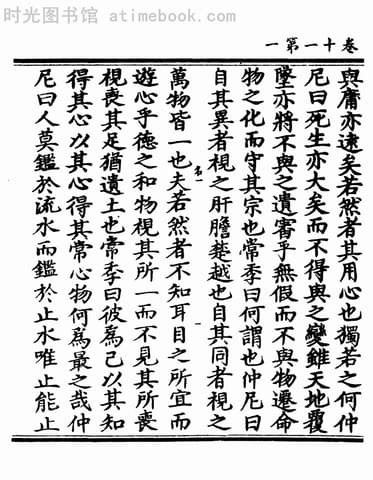 时光图书馆 atimebook.cn
卷十一第一
與庸亦遠矣若然者其用心也獨若之何仲
尼曰死生亦大矣而不得與之變雖天地覆
墜亦將不與之遺審乎無假而不與物遷命
物之化而守其宗也常季曰何謂也仲尼曰
自其異者視之肝膽楚越也自其同者視之
萬物皆一也夫若然者不知耳目之所宜而
遊心乎德之和物視其所一而不見其所喪
視喪其足猶遺土也常季曰彼爲己以其知
得其心以其心得其常心物何爲最之哉仲
尼曰人莫鑑於流水而鑑於止水唯止能止